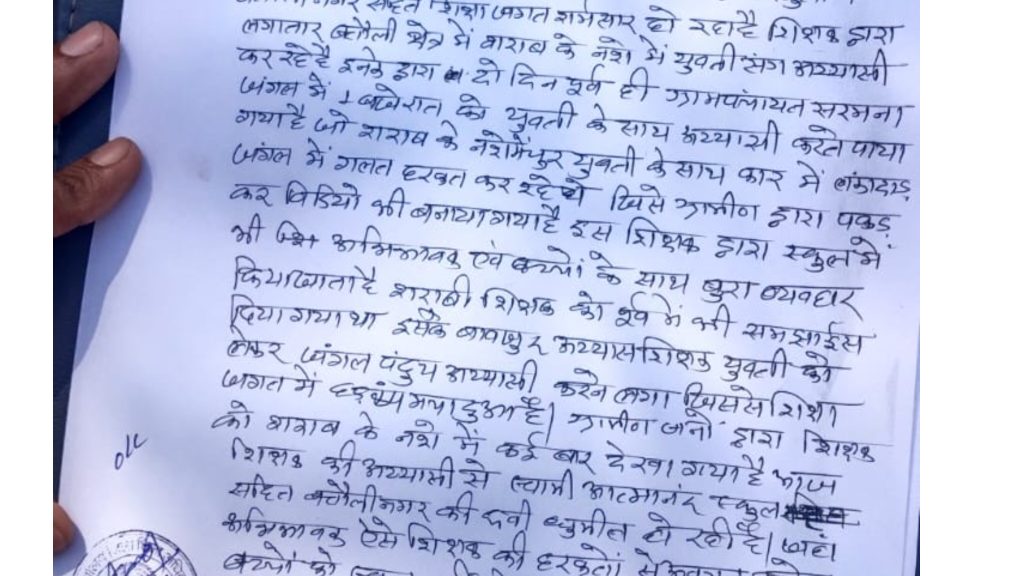 सहित शिक्षा जगत शर्मसार हो रहा है शिक्षक द्वारा
लगातार बतौली क्षेत्र में शराब के नशे में युवती संग अय्यासी
कर रहे है इनके द्वारा दो दिन पूर्व ही ग्रामपंचायत सरमना
जंगल में 1 बजे रात को युवती के साथ अय्यासी करते पाया
गया है जो शराब के नशे में चुर युवती के साथ कार में
जंगल में गलत हरकत कर रहे थे जिसे ग्रामीण द्वारा पकड़
कर विडियो भी बनाया गया है इस शिक्षक द्वारा स्कूल में
भी अभिभावक एवं बच्चों के साथ बुरा व्यवहार
किया जाता है शराबी शिक्षक को पूर्व में भी समझाईस
दिया गया था इसके बावजुद अय्यास शिक्षक युवती को
लेकर जंगल अय्यासी करने लगा जिससे शिक्षा
जगत में मचा हुआ है। ग्रामीण जनों द्वारा शिक्षक
को शराब के नशे में कई बार देखा गया है आज
शिक्षक की अय्यासी से स्वामी आत्मानंद स्कूल
सहित बतौली नगर की छवी धुमील हो रही है। जहां
अभिभावक ऐसे शिक्षक की हरकतों से
बच्चों को